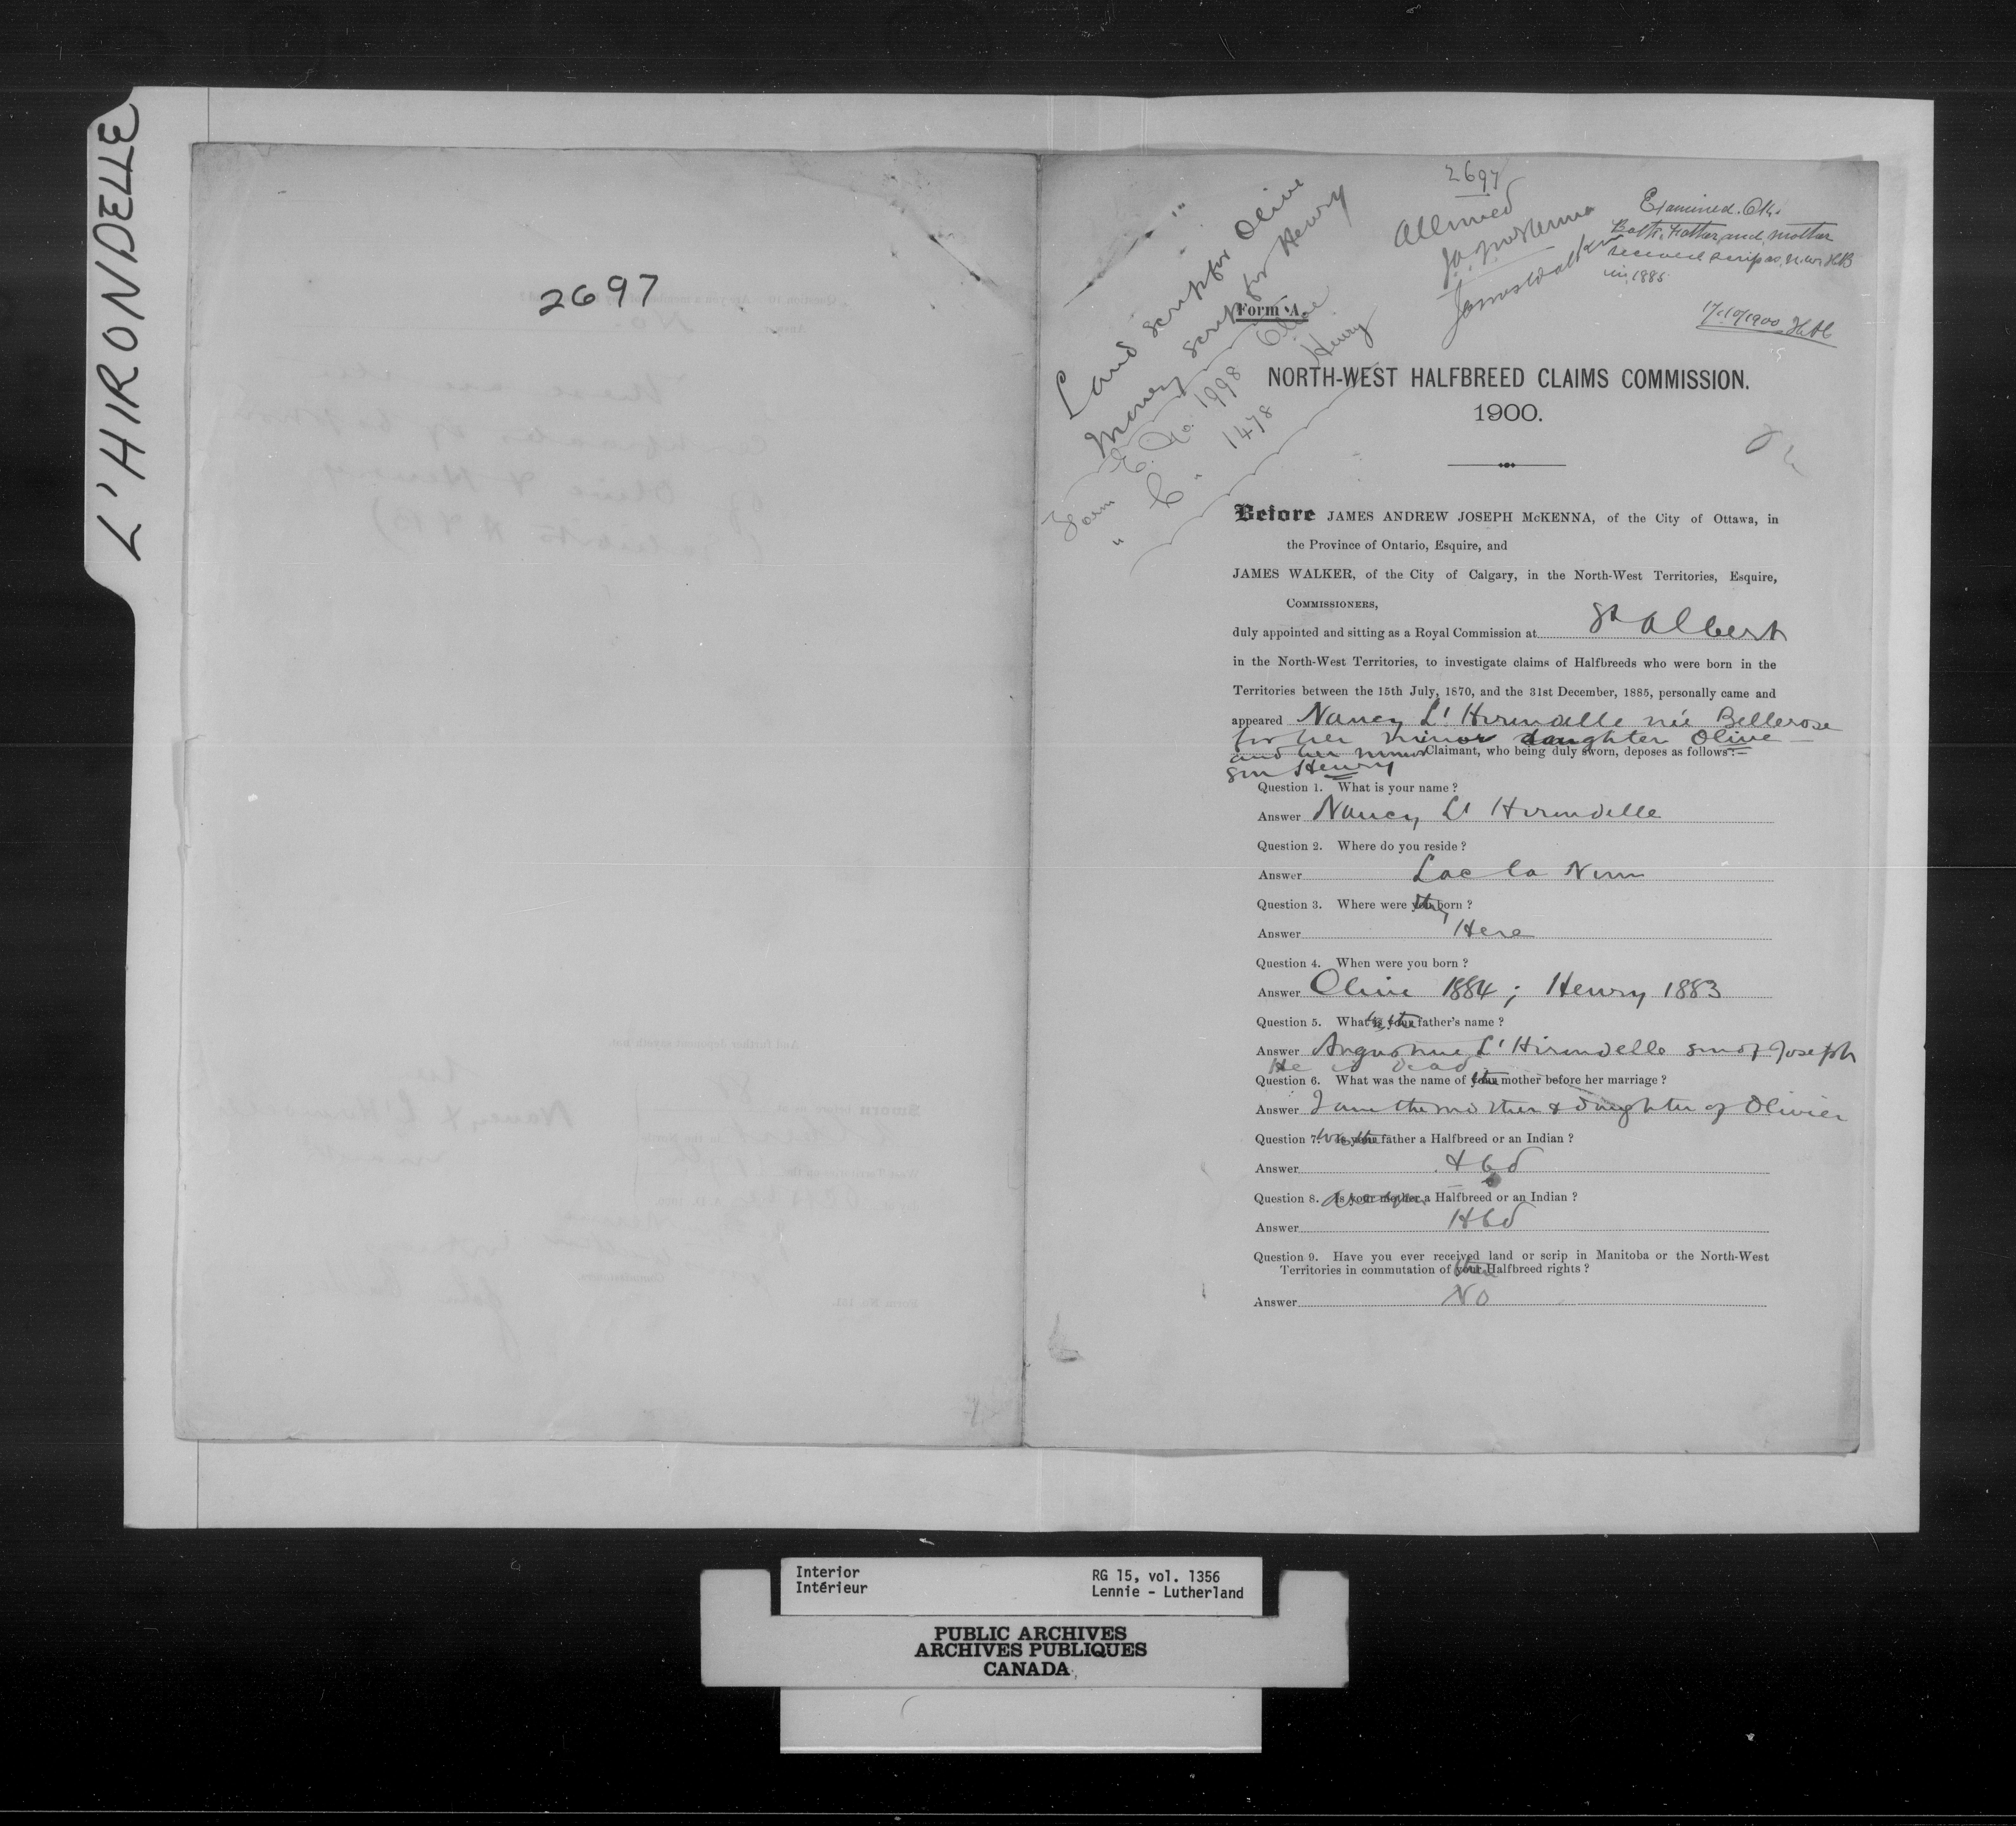 L'HIRONDELLE
2697
2697
Land scrip for Olive
Money scrip for Henry
Form E. No. 1998 Olive
" C. " 1478 Henry
Allowed
J.A.J. McKenna
James Walker
Examined. Ok.
Both Father and Mother
received scrip as N.W. HB
in 1885
17/10/1900
Form A.
NORTH-WEST HALFBREED CLAIMS COMMISSION.
1900.
Before JAMES ANDREW JOSEPH McKENNA, of the City of Ottawa, in
the Province of Ontario, Esquire, and
JAMES WALKER, of the City of Calgary, in the North-West Territories, Esquire,
COMMISSIONERS,
duly appointed and sitting as a Royal Commission at St Albert
in the North-West Territories, to investigate claims of Halfbreeds who were born in the
Territories between the 15th July, 1870, and the 31st December, 1885, personally came and
appeared Nancy L'Hirondelle née Bellerose
for her minor daughter Olive
and her minor Claimant, who being duly sworn, deposes as follows:—
son Henry
Question 1. What is your name?
Answer Nancy L'Hirondelle
Question 2. Where do you reside?
Answer Lac la Nun
Question 3. Where were you they born?
Answer Here
Question 4. When were you born?
Answer Olive 1884; Henry 1883
Question 5. What is your father's name?
Answer L'Hirondelle son of Joseph
He is dead
Question 6. What was the name of your mother before her marriage?
Answer I am the mother & daughter of Olivier
Question 7. Is your father a Halfbreed or an Indian?
Answer Hbd
Question 8. Is your mother a Halfbreed or an Indian?
Answer Hbd
Question 9. Have you ever received land or scrip in Manitoba or the North-West
Territories in commutation of your Halfbreed rights?
Answer No
Interior
Intérieur
RG 15, vol. 1356
Lennie - Lutherland
PUBLIC ARCHIVES
ARCHIVES PUBLIQUES
CANADA